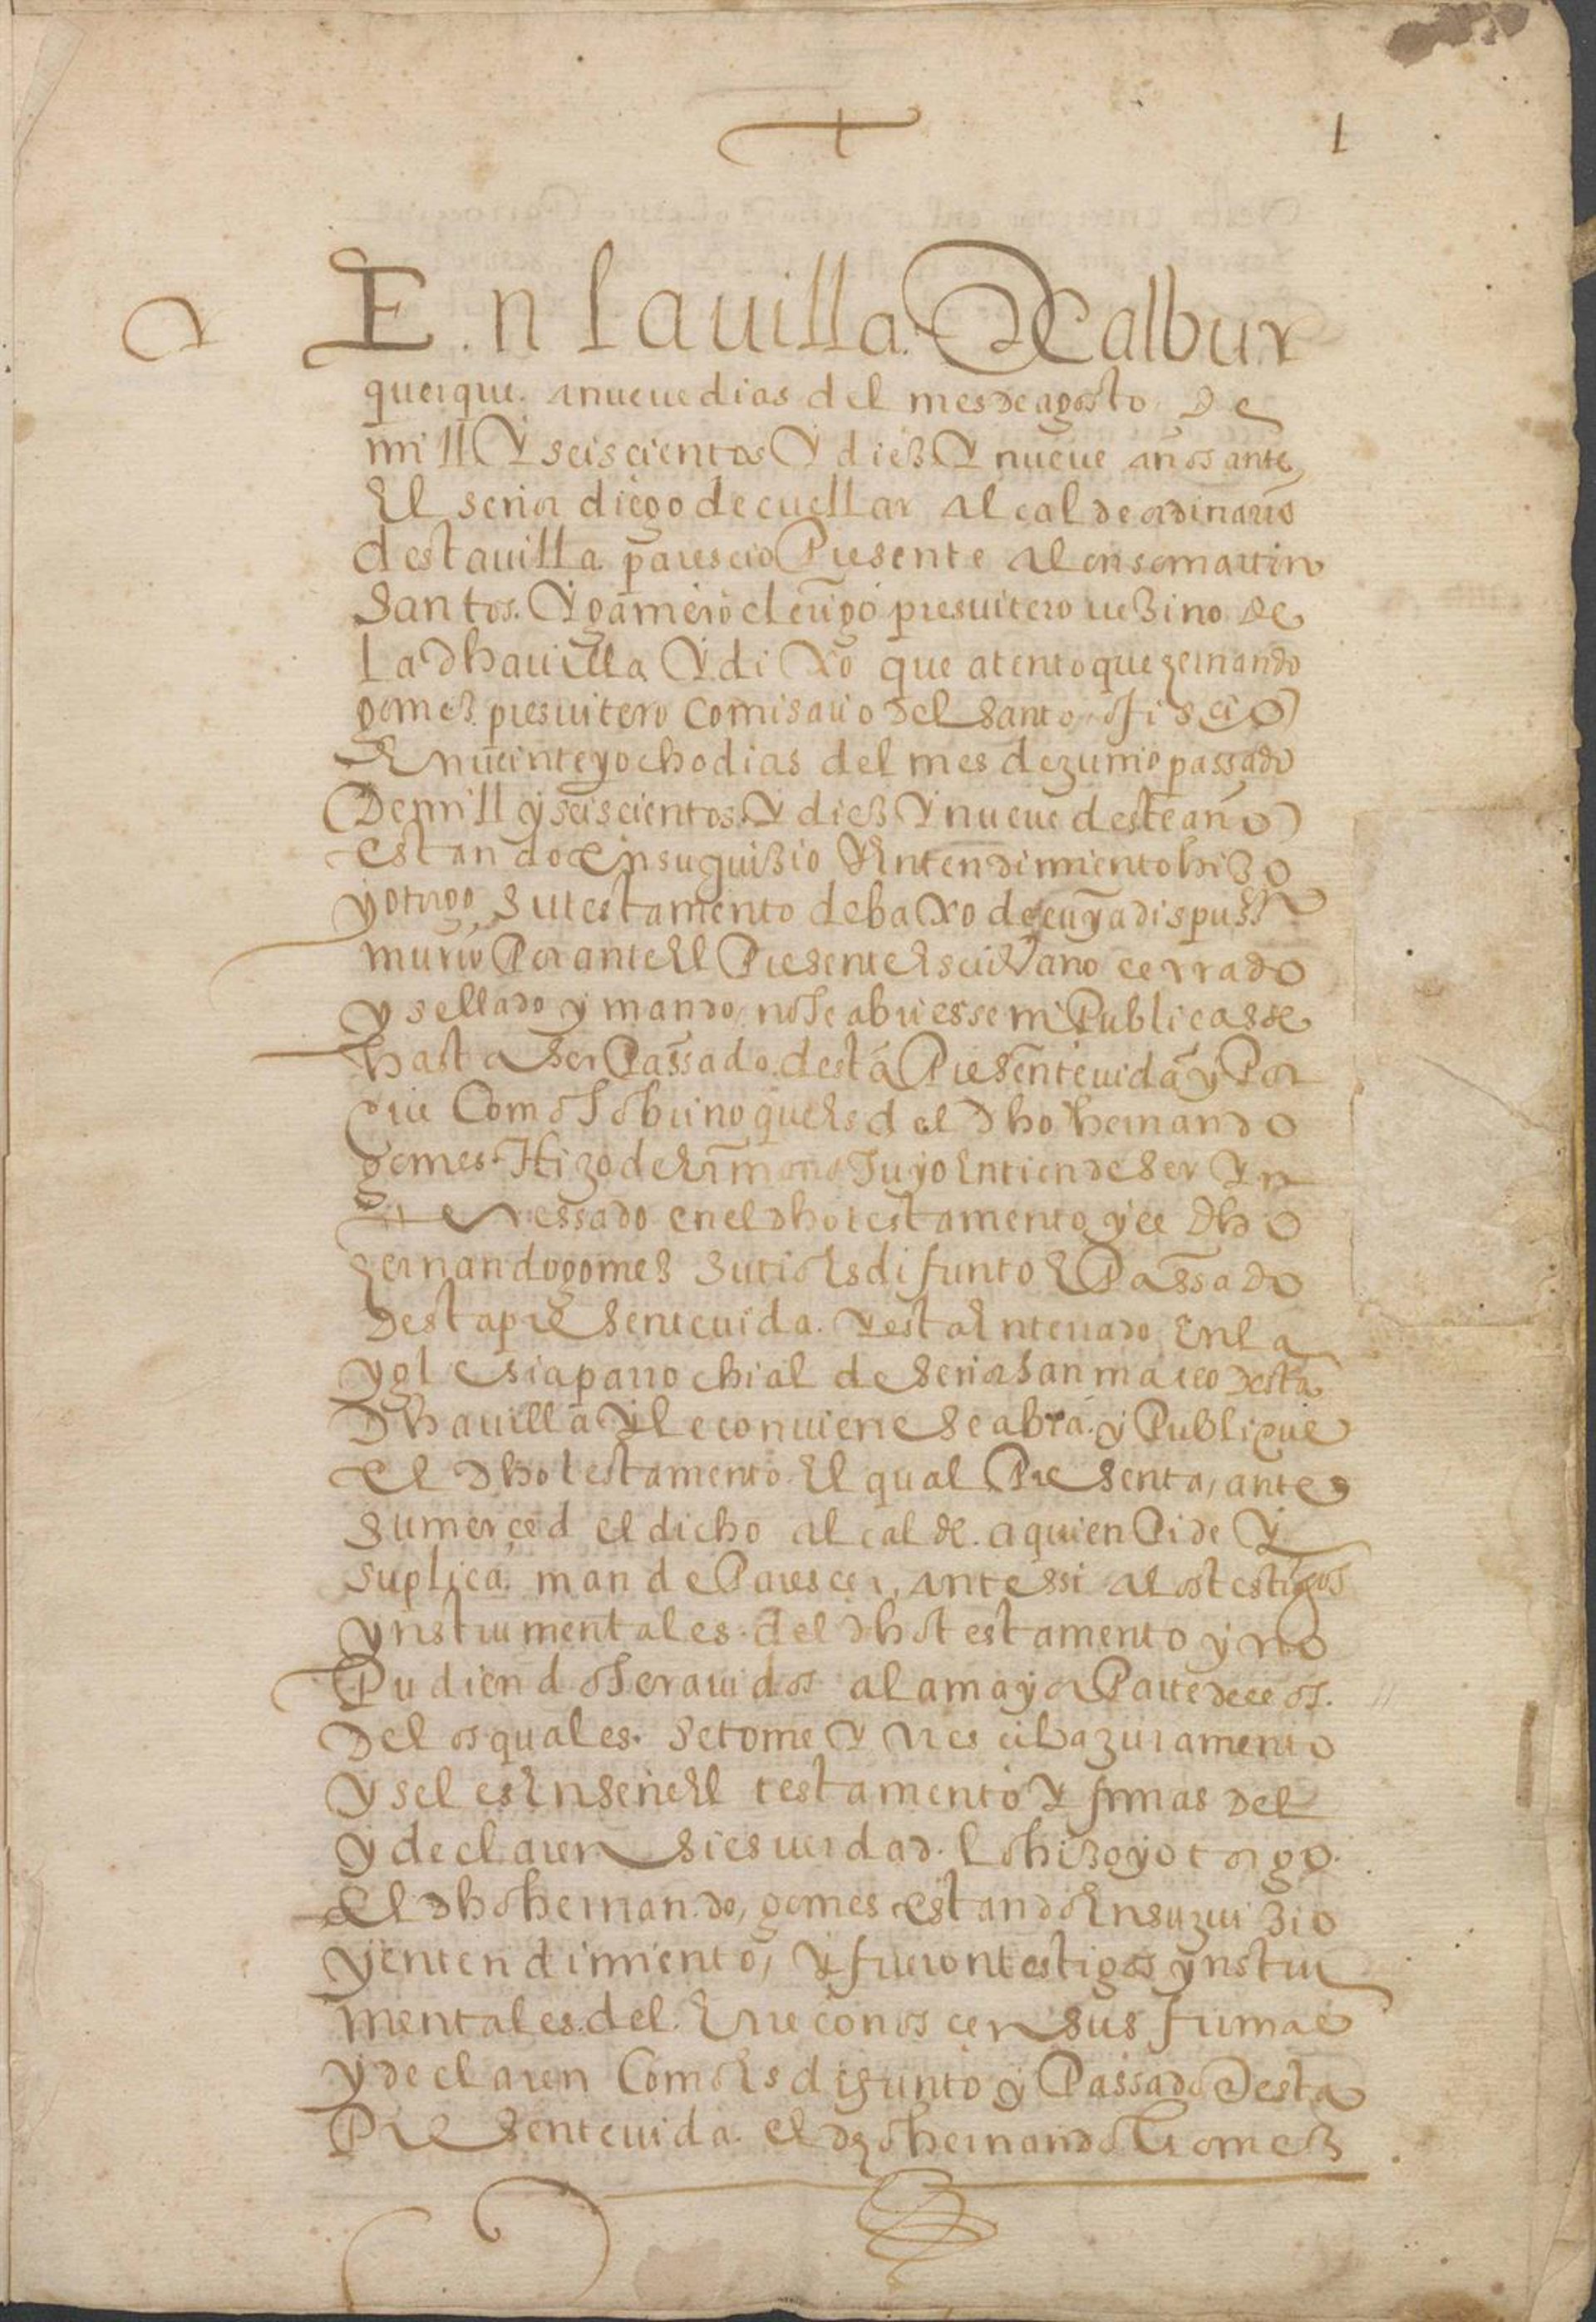 1
En la uilla De albur
querque. a nueue dias del mes de agosto De
mill Y seiscientos Y dieз Y nueue años ante
El señor diego de cuellar alcalde ordinario
desta uilla. parescio Presente Alonso martin
Santos. Y gamero clerigo presuitero ueзino de
La dha uilla Y dixo que atento que zernando
gomeз presuitero Comisario del santo ofiscio
En ueinte y ocho dias del mes de zunio passado
De mill y seiscientos Y dieз Y nueue deste año
estando en su guiзio Y Entendimiento hiзo
y otrgo su testamento debaxo de cuya dispusson
murio Por ante El Presente Escriuano cerrado
y sellado y mando, no se abriesse ni Publicasse
hasta ser Passado desta Presente uida y Por
que Como Sobrino que Es del dho hernando
gomes. Hizo de Ermano Suyo Entiende ser Yn
terressado en el dho testamento y el dho
zernando gomeз su tio Es difunto E Passado
Desta presente uida. Y esta Enterrado, En la
yglesia parrochial de señor san mateo desta
Dha uilla Y le conuiene se abra. y Publique
el dho testamento. El qual Presenta, ante
su merced el dicho alcalde. a quien Pide Y
suplica. mande Parescer, ante ssi a los testigos
ynstrumentales. del dho testamento y no
Pudiendo ser auidos a la mayor Parte de ellos.
De los quales. se tome Y rrescilba zuramento
y se les Enseñe El testamento Y firmas del
y declaren si es uerdad. lo hiзo y otorgo.
El dho hernando, gomes estando En su zuiзio
y entendimiento, Y fueron testigos ynstru
mentales. del. E rreconoscen sus firmas
y declaren Como Es difunto y Passado Desta
Presente uida. el dho hernando Gomeз